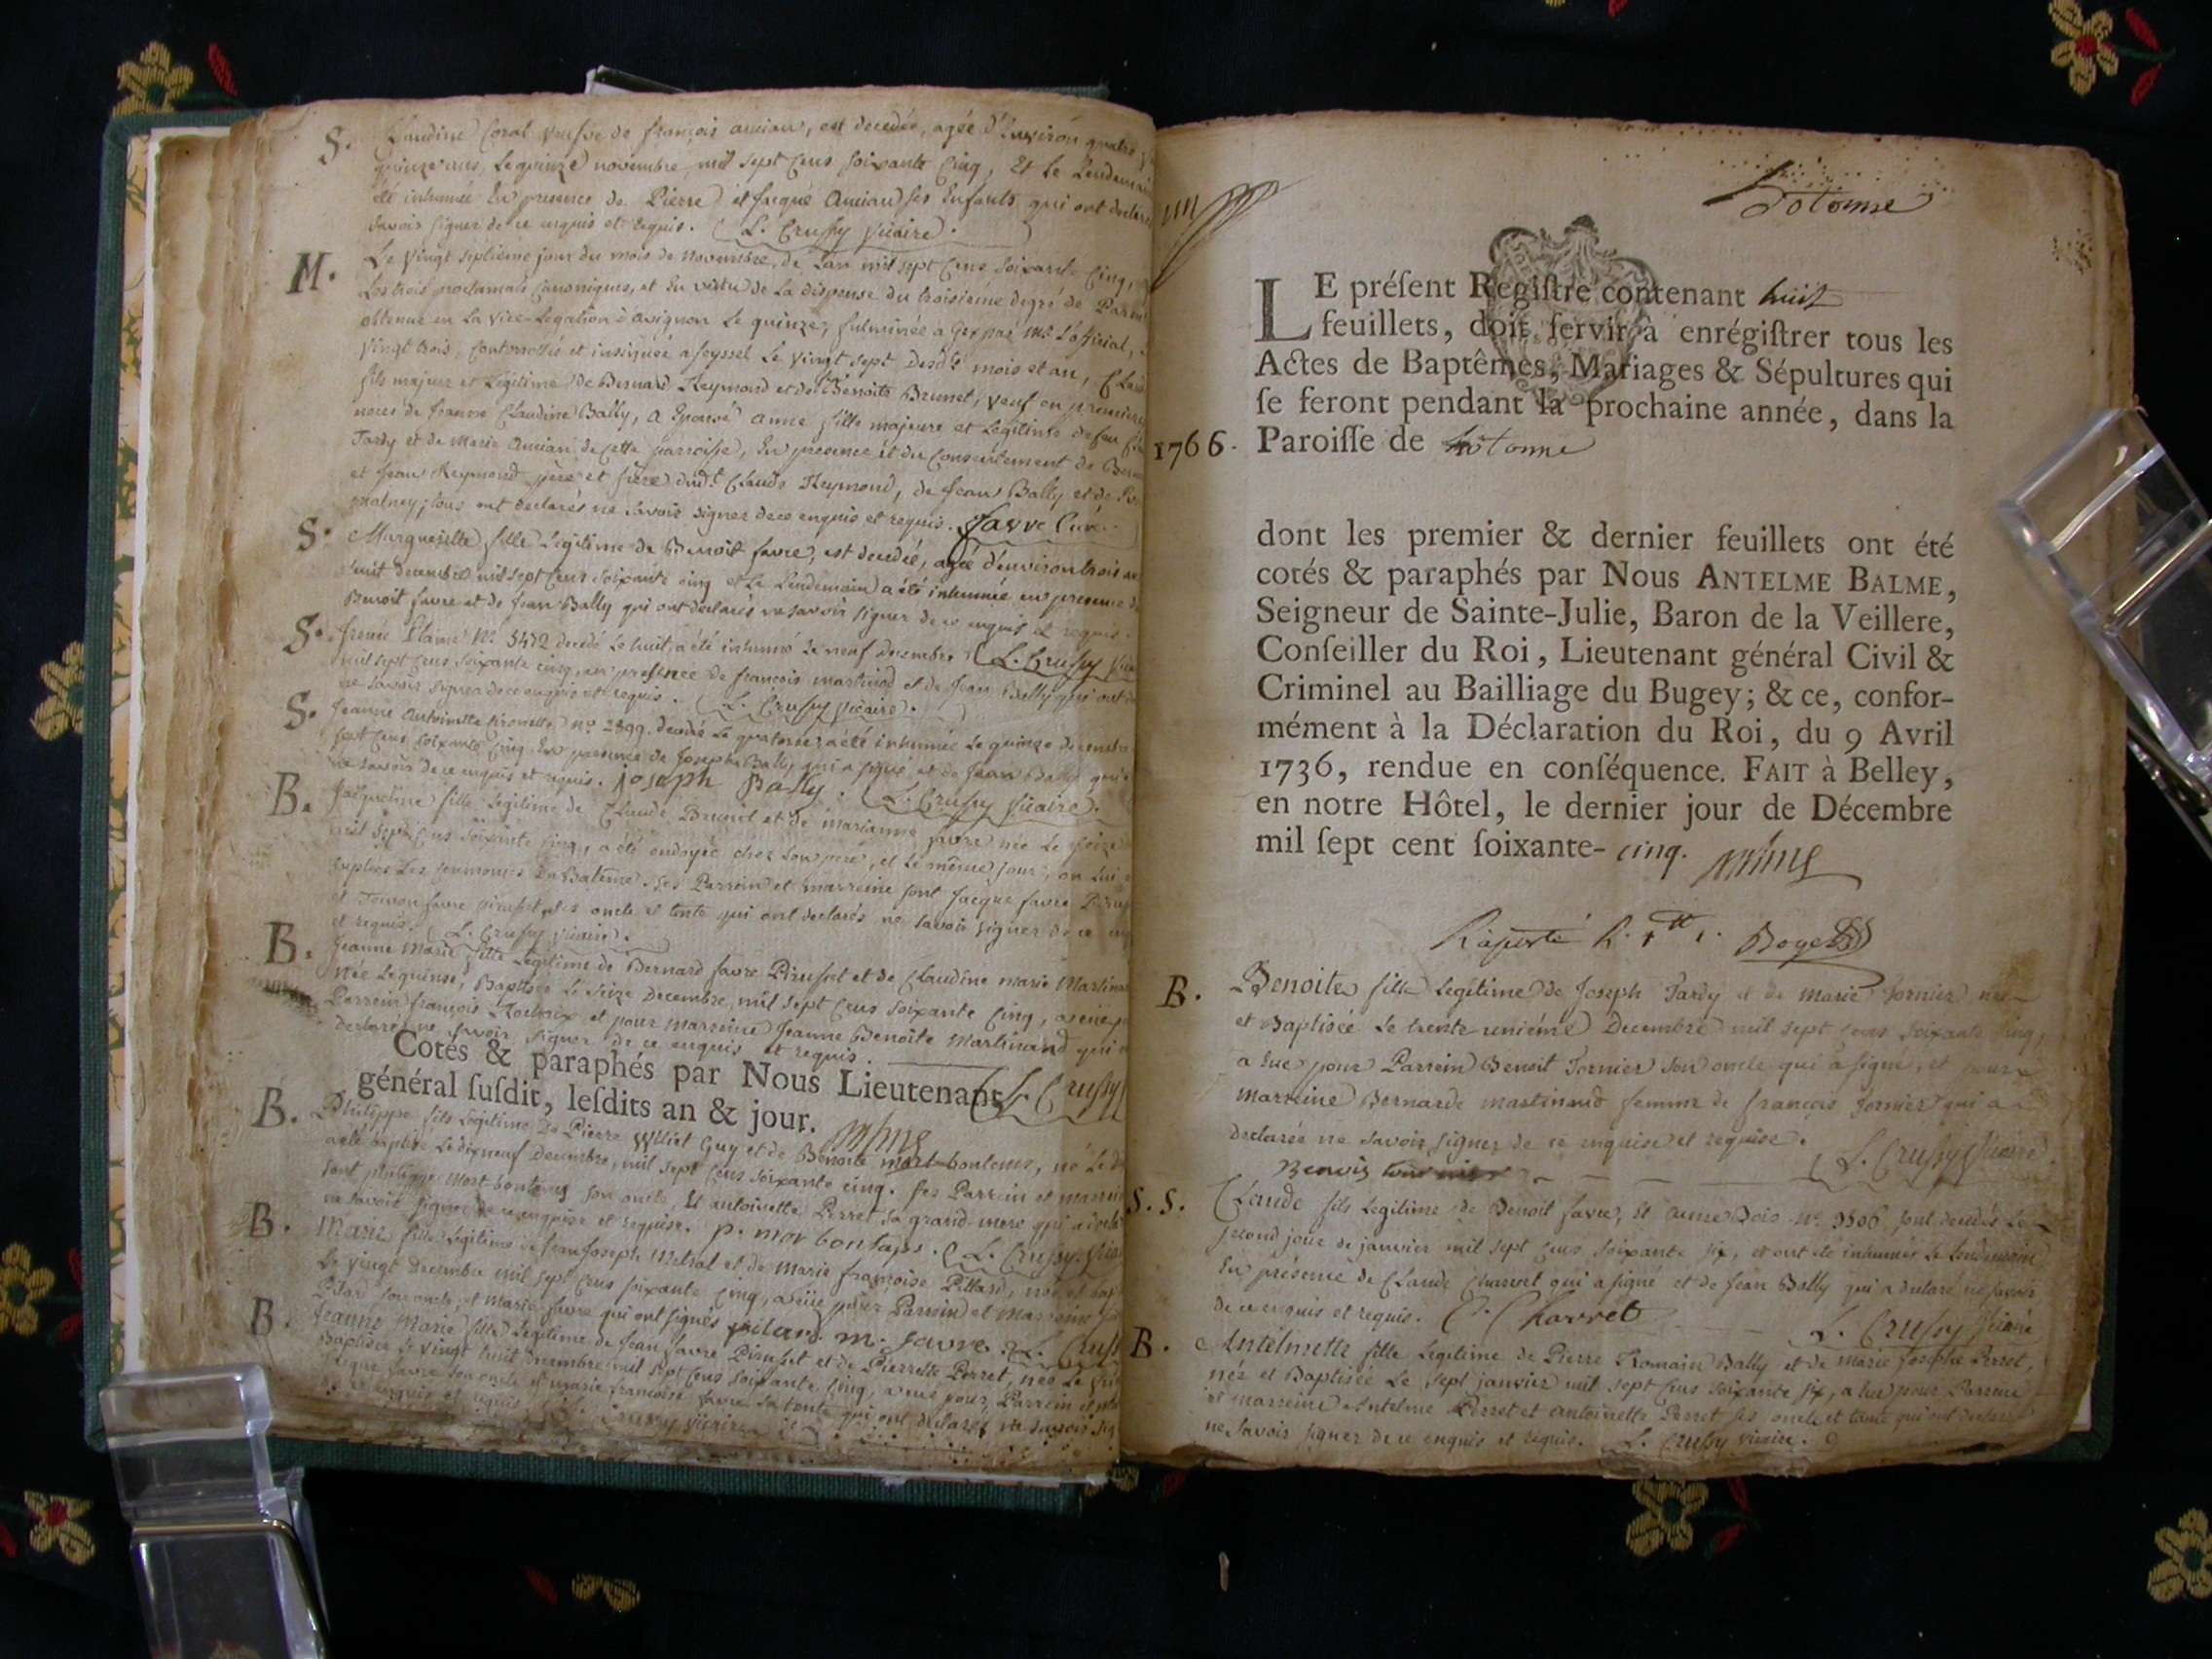 S. Claudine Coral veufve de françois amian, est decedée, agée d'environ quatre
quinze ans, Le quinze novembre, mil sept cens soixante cinq, Et Le Lendemain
été inhumée En presence de Pierre et Jacque Amian ses Enfants qui ont declaré
savoir signer de ce enquis et requis. L. Crussy vicaire.
M. Le vingt septieme jour du mois de novembre de L'an mil sept cens soixante cinq,
Les trois proclamats Canoniques, et En vertu de La dispense du troisieme degré de
obtenue en La vice-Legation d'avignon Le quinze, fulminée a Gex par Mr. L'official,
vingt trois, et insinuée a seyssel Le vingt sept desdts. mois et an,
fils majeur et Legitime de Bernard Reymond et de Benoite Brunet, veuf en premieres
noces de Claudine Bally, a Epousé Anne fille majeure et Legitime de feu
Tardy et de Marie Amian de cette parroisse, En presence et du Consentement de
et Jean Reymond pere et frere dudt. Claude Reymond, de Jean Bally et de
tous ont declarés ne savoir signer de ce enquis et requis. favre Curé.
S. Marguerite fille Legitime de Benoit favre, est decedée, agée d'environ trois
huit decembre mil sept cens soixante cinq et Le Lendemain a été inhumée en presence
Benoit favre et de Jean Bally qui ont declarés ne savoir signer de ce enquis et requis.
S. No. 5472 decedé Le huit, a été inhumé Le neuf decembre L. Crussy
mil sept cens soixante cinq, en presence de françois martinod et de Jean Bally qui ont
ne savoir signer de ce enquis et requis. L. Crussy vicaire.
S. Jeanne Antoinette No. 2899. decedée Le quatorze, a été inhumée Le quinze decembre
sept cens soixante cinq En presence de Joseph Bally qui a signé et de Jean Bally qui
ne savoir de ce enquis et requis. joseph Bally. L. Crussy vicaire.
B. Jacqueline fille Legitime de Claude Brunet et de marianne favre née Le
mil sept cens soixante cinq, a été ondoyée chez son pere, et Le même jour, on lui
Les ceremonies du Batême. ses Parrein et marreine sont Jacque favre
et favre ses oncle et tente qui ont declarés ne savoir signer de ce
et requis. L. Crussy vicaire.
B. Jeanne Marie fille Legitime de Bernard favre Pirusset et de Claudine marie
née Le quinse, Baptisée Le seize decembre, mil sept cens soixante cinq,
Parrein françois et pour marreine Jeanne Benoite Martinand qui
declarés ne savoir signer de ce enquis et requis.
L. Crussy
Cotés & paraphés par Nous Lieutenant
général ſuſdit, leſdits an & jour.
B. Philippe fils Legitime de Pierre Guy et de Benoite mort-bontems, né Le
a été baptisé Le dixneuf decembre, mil sept cens soixante cinq. ses Parrein et marreine
sont philippe mort bontems son oncle, Et antoinette Perret sa grand-mere qui a declaré
ne savoir signer de ce enquise et requise. p. mor bontaps. L. Crussy
B. Marie fille Legitime de Jean Joseph Metral et de Marie françoise Pillard, née et
Le vingt decembre mil sept cens soixante cinq, a eüe pour Parrein et Marreine
son oncle, et Marie favre qui ont signés pilard. m. favre. L. Crussy
B. Jeanne Marie fille Legitime de Jean favre Pirusset et de Pierrette Perret, née Le
Baptisée Le vingt huit decembre mil sept cens soixante cinq, a eue pour Parrein et
favre son oncle et marie francoise favre sa tente qui ont declarés ne savoir
de ce enquis et requis. L. Crussy vicaire
Sotonne
LE préſent Regiſtre contenant huit
feuillets, doit ſervir à enrégiſtrer tous les
Actes de Baptêmes, Mariages & Sépultures qui
ſe feront pendant la prochaine année, dans la
1766. Paroiſſe de Sotonne
dont les premier & dernier feuillets ont été
cotés & paraphés par Nous ANTELME BALME,
Seigneur de Sainte-Julie, Baron de la Veillere,
Conſeiller du Roi, Lieutenant général Civil &
Criminel au Bailliage du Bugey; & ce, confor-
mément à la Déclaration du Roi, du 9 Avril
1736, rendue en conſéquence. FAIT à Belley,
en notre Hôtel, le dernier jour de Décembre
mil ſept cent ſoixante- cinq.
B. Benoite fille Legitime de Joseph Tardy et de Marie Tornier née
et Baptisée Le trente unieme Decembre mil sept cens soixante cinq,
a Eue pour Parrein Benoit Tornier son oncle qui a signé, et pour
marreine Bernarde martinand femme de françois Tornier qui a
declarée ne savoir signer de ce enquise et requise. L. Crussy vicaire
Benois
S. S. Claude fils Legitime de Benoit favre, Et Anne Bois No. 3506 sont decedés Le
second jour de janvier mil sept cens soixante six, et ont été inhumés Le Lendemain
En présence de Claude Charvet qui a signé et de Jean Bally qui a declaré ne savoir
de ce enquis et requis. C. Charvet L. Crussy vicaire
B. Antelmette fille Legitime de Pierre Romain Bally et de Marie Josephe Perret,
née et Baptisée Le sept janvier mil sept cens soixante six, a Eue pour Parrein
et marreine Antelme Perret et antoinette Perret ses oncle et tante qui ont declaré
ne savoir signer de ce enquis et requis. L. Crussy vicaire.